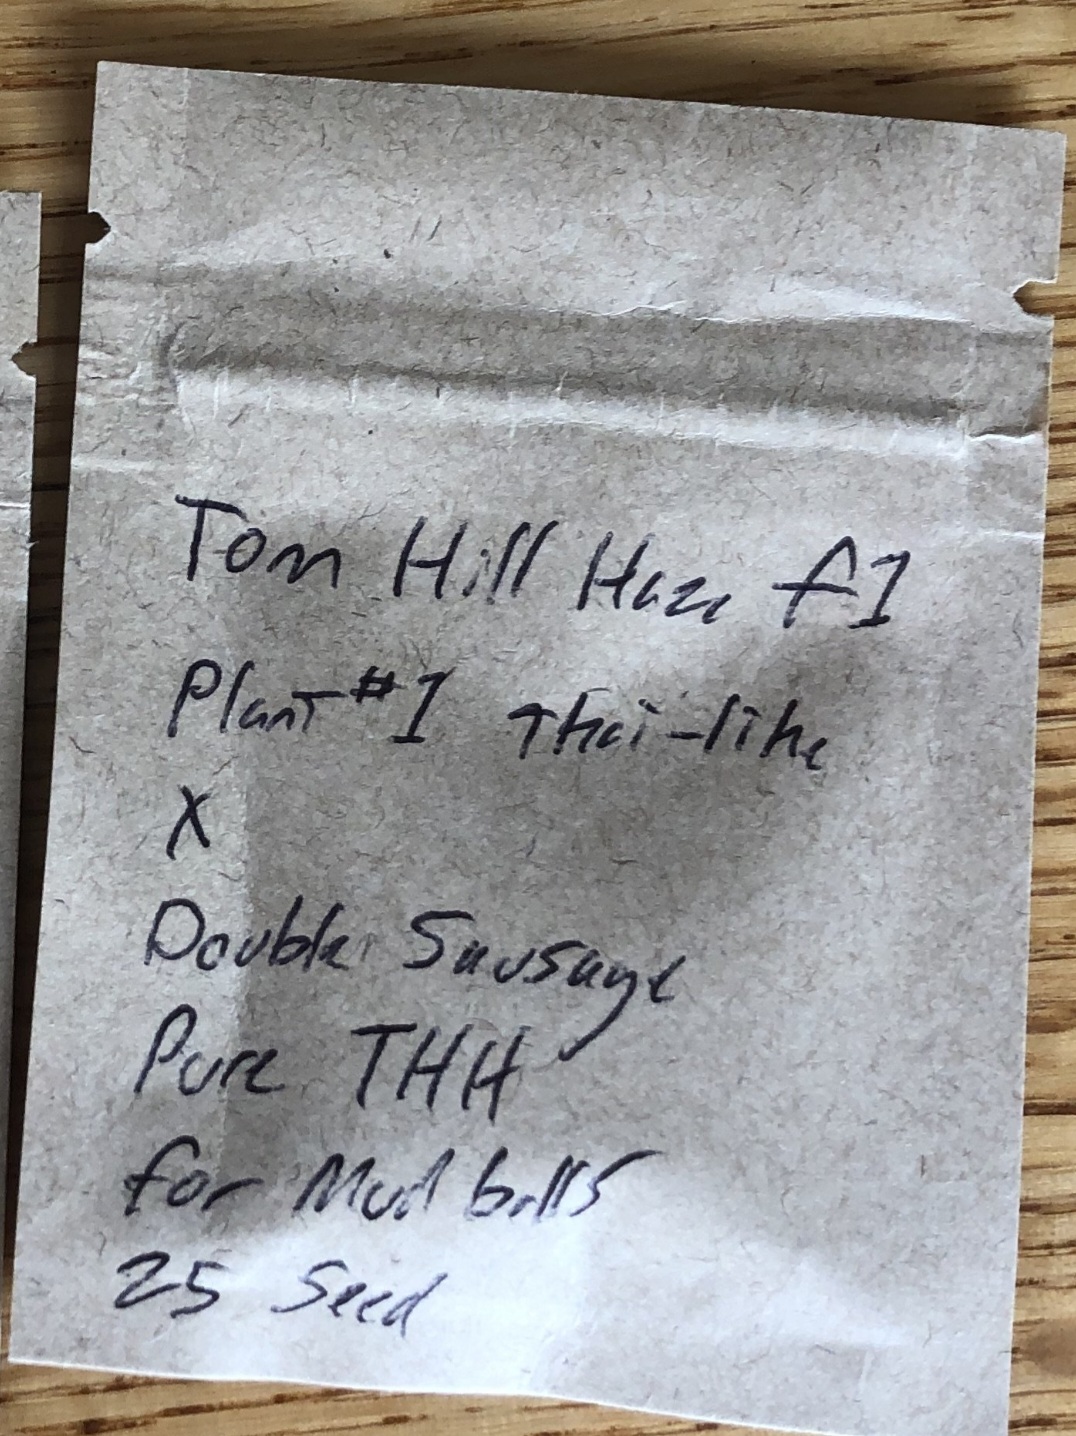 Tom Hill Haze f1
Plant #1 Thai-like
X
Double Sausage
Pure THH
for Mud balls
25 Seed